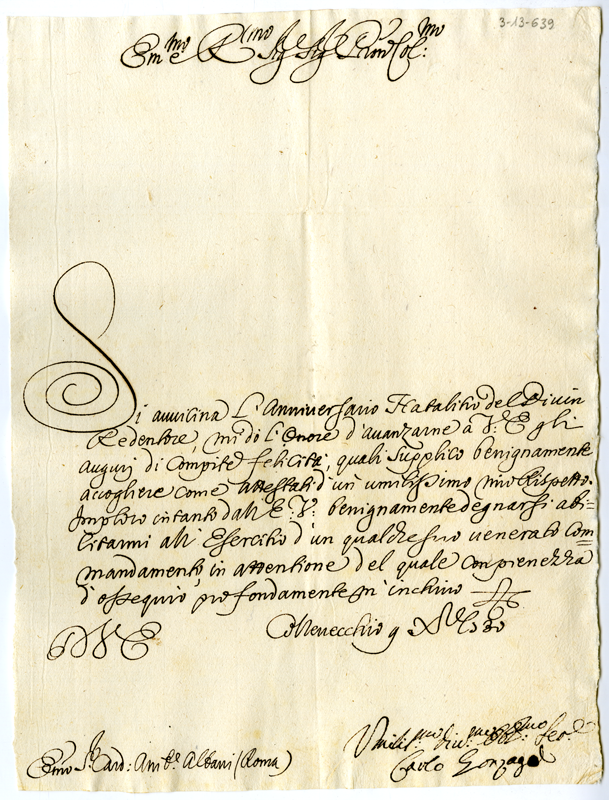 3-13-639
Em.mo e R.mo Sig.r Sig.r Pron Col.mo
Si avvicina L'Anniversario Natalitio del Divin
Redentore, mi dò L'Onore d'avanzarne a V.E gli
augurj di Compite felicità, quali supplico benignamente
accogliere come attestati d'un umilissimo mio Rispetto.
Imploro intanto dall'E.V. benignamente degnarsi abi-
litarmi all'Esercitio d'un qualche suo venerato Com=
mandamento, in attentione del quale con pienezza
d'ossequio, profondamente m'inchino
D V E
Collevecchio 9
Umiliss.mo Div.mo Ser.e
Em̃o S.r Card: Anib.e Albani (Roma)
Carlo Gonzaga